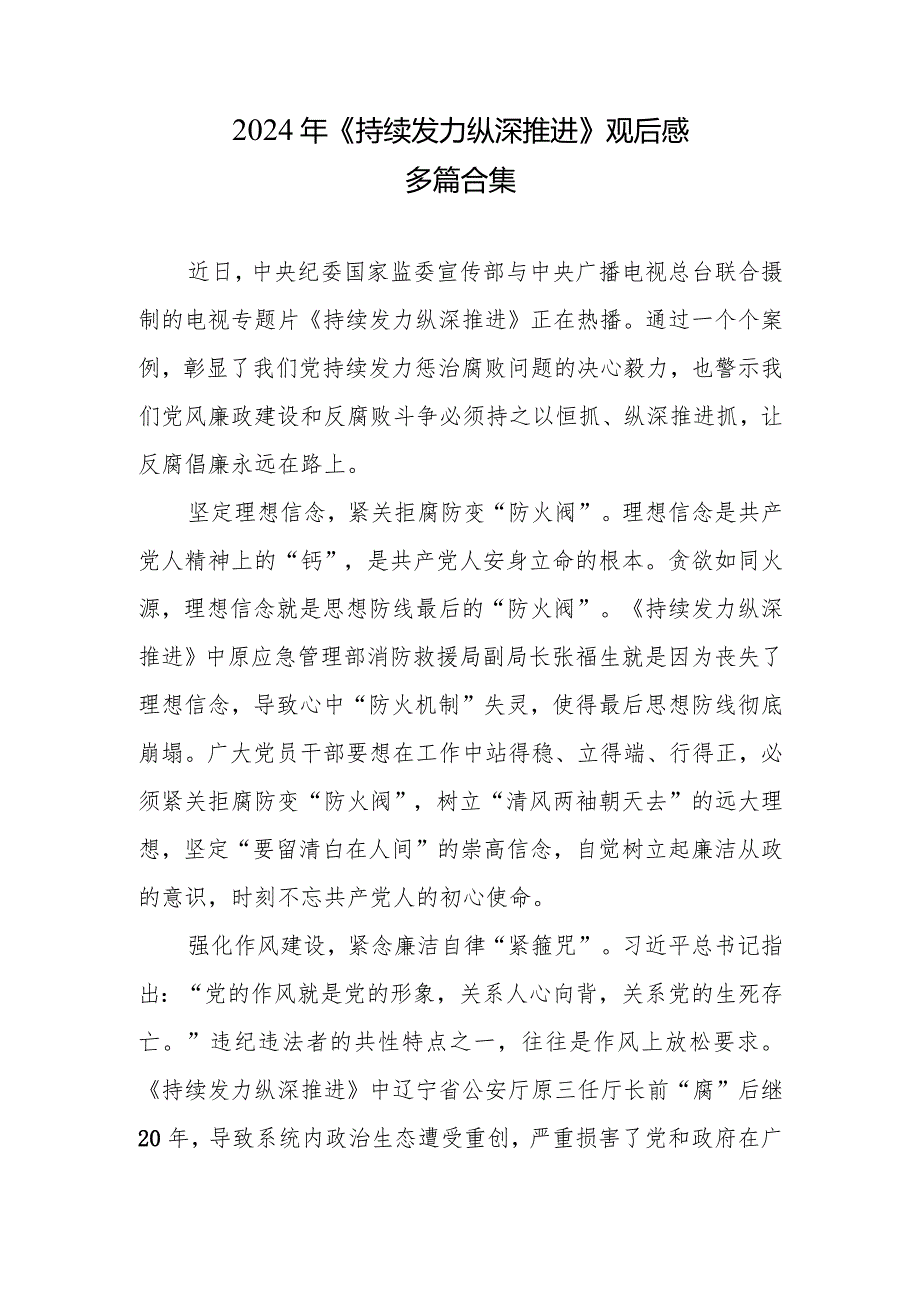 2024 年《持续发力纵深推进》观后感
多篇合集
近日，中央纪委国家监委宣传部与中央广播电视总台联合摄
制的电视专题片《持续发力纵深推进》正在热播。通过一个个案
例，彰显了我们党持续发力惩治腐败问题的决心毅力，也警示我
们党风廉政建设和反腐败斗争必须持之以恒抓、纵深推进抓，让
反腐倡廉永远在路上。
坚定理想信念，紧关拒腐防变“防火阀”。理想信念是共产
党人精神上的“钙”，是共产党人安身立命的根本。贪欲如同火
源，理想信念就是思想防线最后的“防火阀”。《持续发力纵深
推进》中原应急管理部消防救援局副局长张福生就是因为丧失了
理想信念，导致心中“防火机制”失灵，使得最后思想防线彻底
崩塌。广大党员干部要想在工作中站得稳、立得端、行得正，必
须紧关拒腐防变“防火阀”，树立“清风两袖朝天去”的远大理
想，坚定“要留清白在人间”的崇高信念，自觉树立起廉洁从政
的意识，时刻不忘共产党人的初心使命。
强化作风建设，紧念廉洁自律“紧箍咒”。习近平总书记指
出：“党的作风就是党的形象，关系人心向背，关系党的生死存
亡。”违纪违法者的共性特点之一，往往是作风上放松要求。
《持续发力纵深推进》中辽宁省公安厅原三任厅长前“腐”后继
20 年，导致系统内政治生态遭受重创，严重损害了党和政府在广